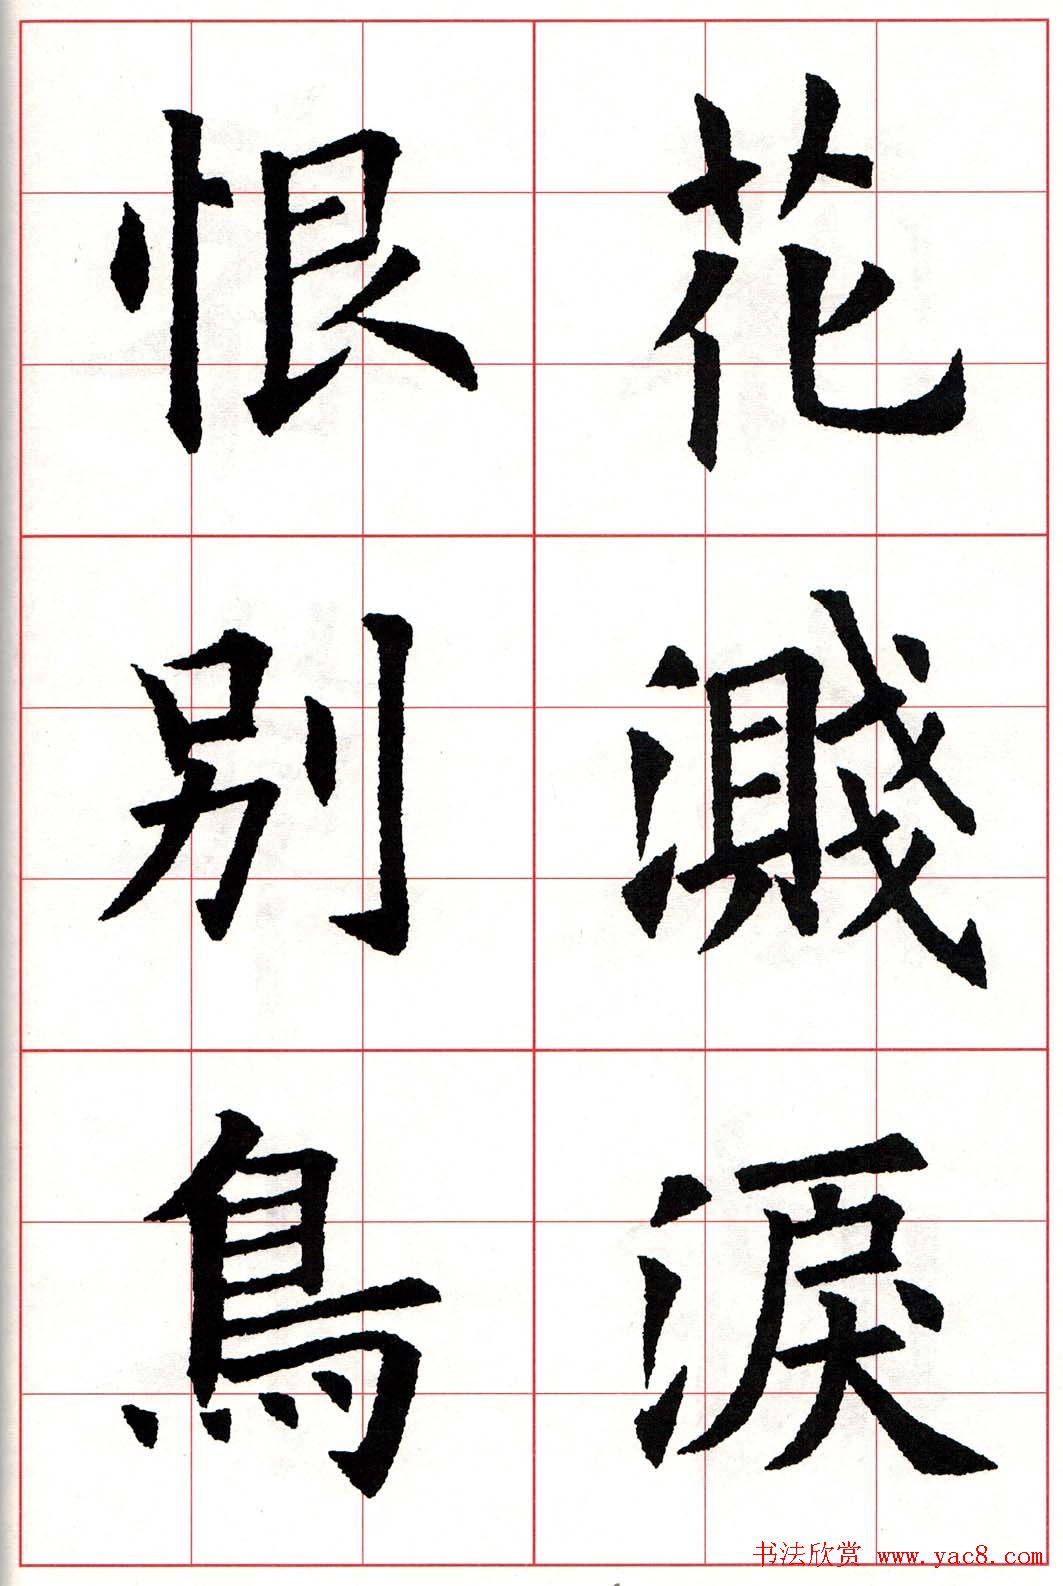 花濺淚
恨別鳥
书法欣赏 www.yac8.com